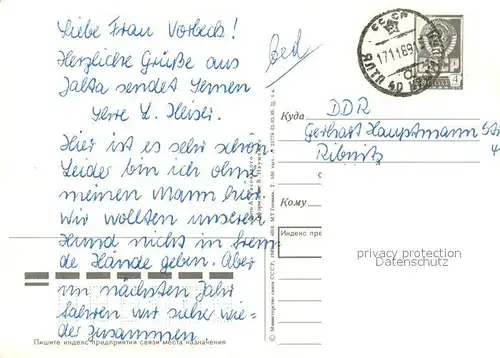 Liebe Frau Vorbeck!
Herzliche Grüße aus
Jalta sendet Ihnen
Ihre L. Heiser.
Hier ist es sehr schön
Leider bin ich ohne
meinen Mann hier.
Wir wollten unseren
Hund nicht in frem
de Hände geben. Aber
im nächsten Jahr
fahren wir sicher wie-
der zusammen
Пишите индекс предприятия связи места назначения
СССР
171189
ЯЛТА
4
Куда
DDR
Gerhart Hauptmann
Ribnitz
Кому
Индекс пре
privacy protection
Datenschutz
© Министерство связи СССР, 1989